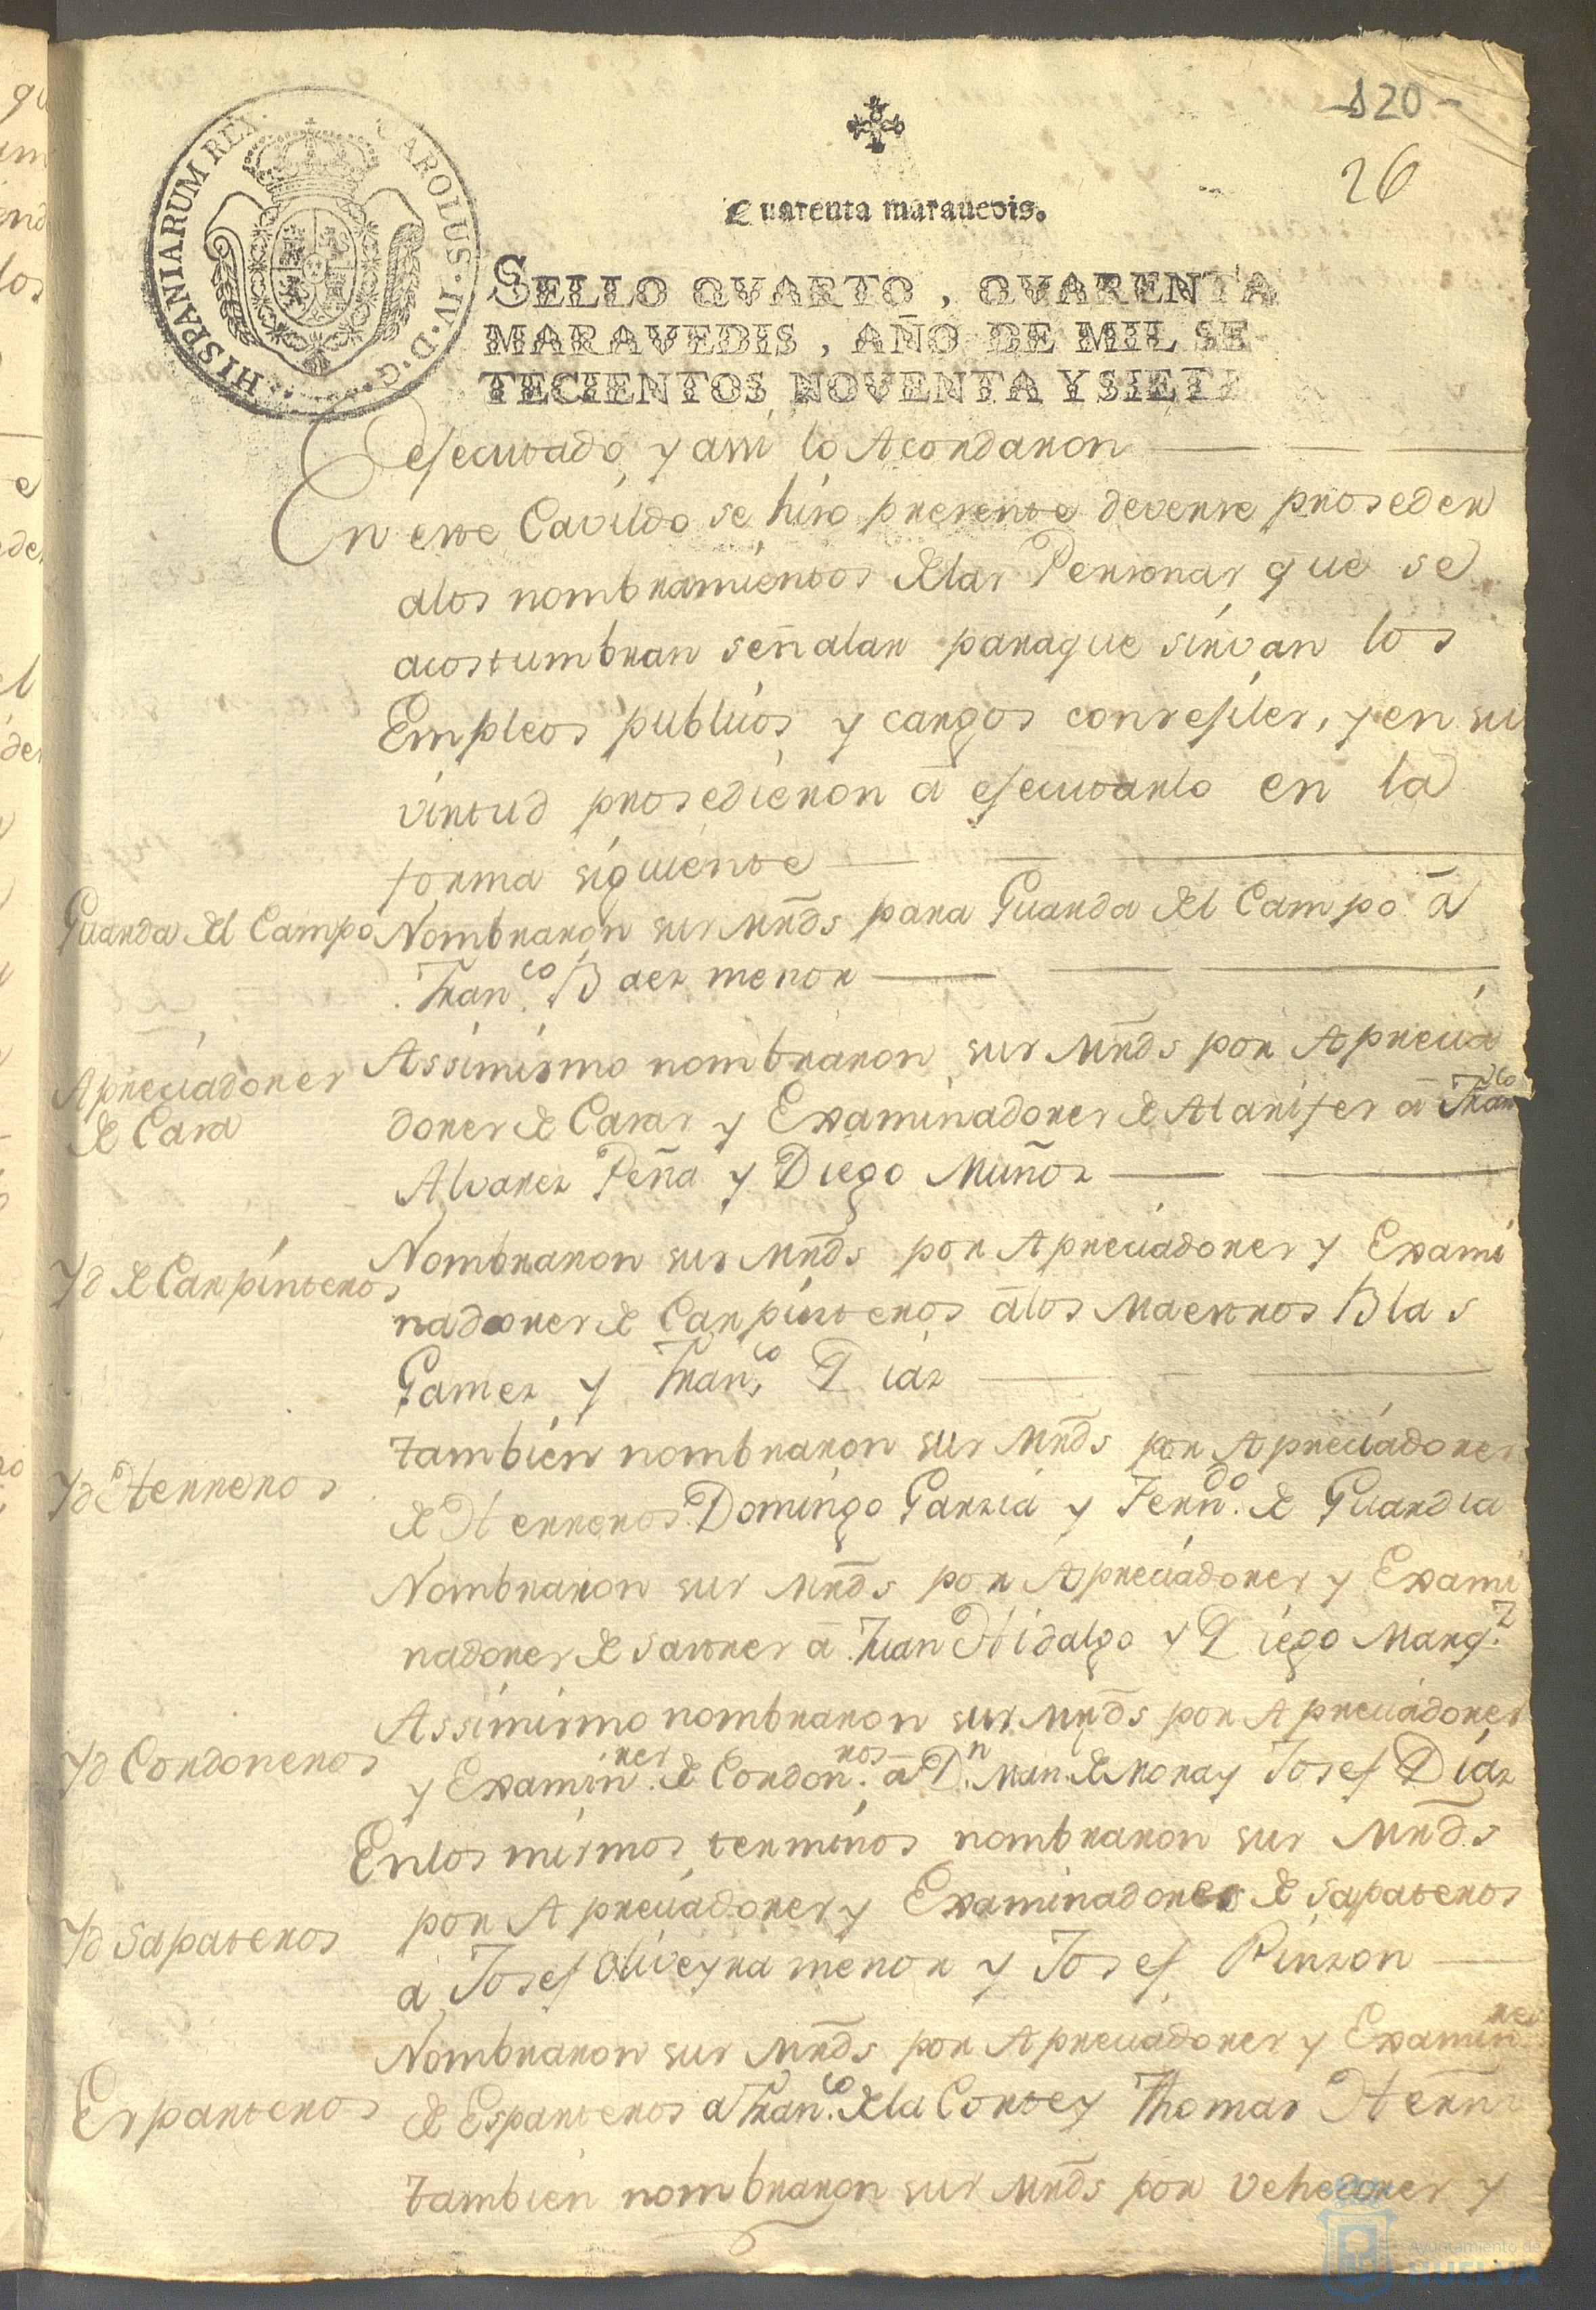 -120-
26
Quarenta marauedis.
CAROLUS·IV·D·G·HISPANIARUM REX·
SELLO QVARTO, QVARENTA
MARAVEDIS, AÑO DE MIL SE-
TECIENTOS NOVENTA Y SIETE
ejecutado, y assi lo Acordaron
En este Cavildo se hiso presente deverse proseder
alos nombramientos delas Personas que se
acostumbran señalar paraque sirvan los
Empleos publicos y cargos consejiles, y en su
virtud prosedieron á ejecutarlo en la
forma siguiente
Guarda del Campo
Nombraron sus Mrds para Guarda del Campo á
Fran.co Baez menor
Apreciadores
de Casa
Assimismo nombraron sus Mrds por Aprecia
dores de Casas y Examinadores de Alarifes á
Alvarez Peña y Diego Muñoz
Yd de Carpinteros
Nombraron sus Mrds por Apreciadores y Exami
nadores de Carpinteros álos Maestros Blas
Gamez y Fran.co Diaz
Yd Herreros
tambien nombraron sus Mrds por Apreciadores
de Herreros Domingo Garzia y Fern.do de Guardia
Nombraron sus Mrds por Apreciadores y Exami
nadores de Sastres á Juan Hidalgo y Diego Marq.z
Yd Cordoneros
Assimismo nombraron sus Mrds por Apreciadores
y Examin.res de Cordon.ros á D.n Man. de Mora y Josef Diaz
Enlos mismos terminos nombraron sus Mrds
Yd Sapateros
por Apreciadores y Examinadores de Sapateros
a Josef Oliveyra menor y Josef Pinzon
Nombraron sus Mrds por Apreciadores y Examin.res
Esparteros
de Esparteros a Fran.co dela Corte y Thomas Hern
tambien nombraron sus Mrds por Vehedores y
Ayuntamiento de
HUELVA